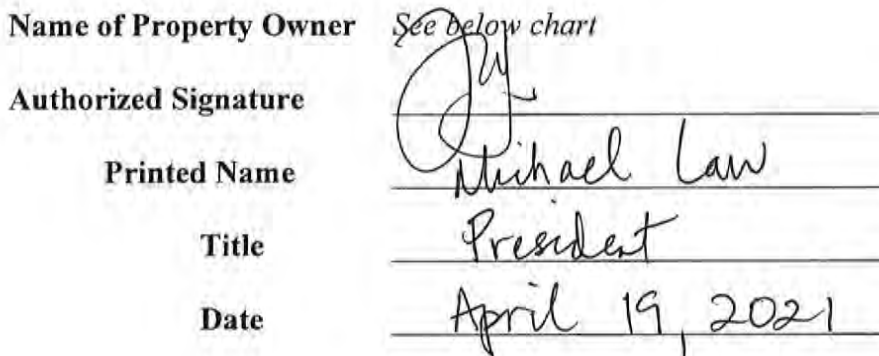 Name of Property Owner See below chart
Authorized Signature
Printed Name Michael Law
Title President
Date April 19, 2021